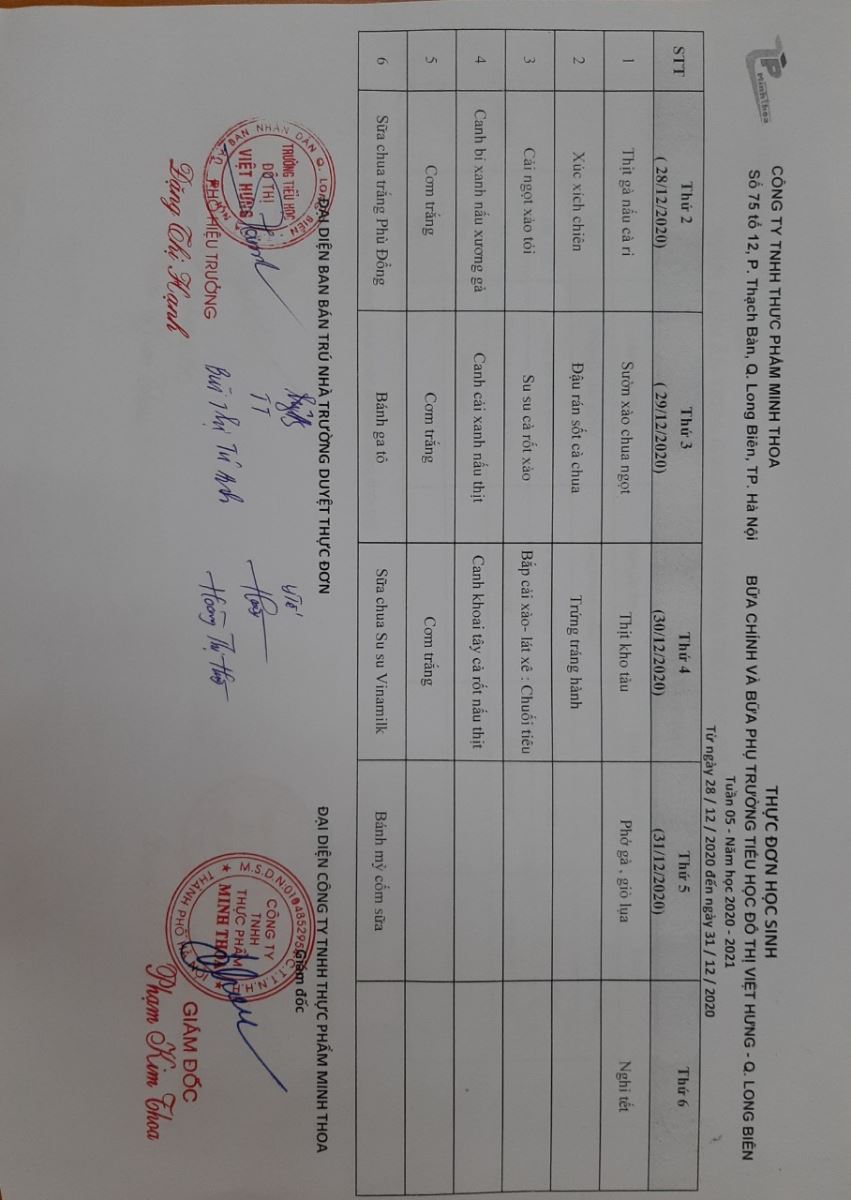 TP
Minh Thoa
CÔNG TY TNHH THỰC PHẨM MINH THOA
Số 75 tổ 12, P. Thạch Bàn, Q. Long Biên, TP. Hà Nội
THỰC ĐƠN HỌC SINH
BỮA CHÍNH VÀ BỮA PHỤ TRƯỜNG TIỂU HỌC ĐÔ THỊ VIỆT HƯNG - Q. LONG BIÊN
Tuần 05 - Năm học 2020 - 2021
Từ ngày 28 / 12 / 2020 đến ngày 31 / 12 / 2020
STT Thứ 2 Thứ 3 Thứ 4 Thứ 5 Thứ 6
( 28/12/2020) ( 29/12/2020) (30/12/2020) (31/12/2020)
1 Thịt gà nấu cà ri Sườn xào chua ngọt Thịt kho tàu Phở gà , giò lụa Nghỉ tết
2 Xúc xích chiên Đậu rán sốt cà chua Trứng tráng hành
3 Cải ngọt xào tỏi Su su cà rốt xào Bắp cải xào- lát xê : Chuối tiêu
4 Canh bí xanh nấu xương gà Canh cải xanh nấu thịt Canh khoai tây cà rốt nấu thịt
5 Cơm trắng Cơm trắng Cơm trắng
6 Sữa chua trắng Phù Đổng Bánh ga tô Sữa chua Su su Vinamilk Bánh mỳ cốm sữa
ĐẠI DIỆN BAN BÁN TRÚ NHÀ TRƯỜNG DUYỆT THỰC ĐƠN
ĐẠI DIỆN CÔNG TY TNHH THỰC PHẨM MINH THOA
Giám đốc
TRƯỜNG TIỂU HỌC
ĐÔ THỊ
VIỆT HƯNG
PHÓ HIỆU TRƯỞNG
Đặng Thị Hạnh
TT
Bùi Thị Tú Anh
Y tế
Hoàng Thị
CÔNG TY
TNHH
THỰC PHẨM
MINH THOA
GIÁM ĐỐC
Phạm Kim Thoa